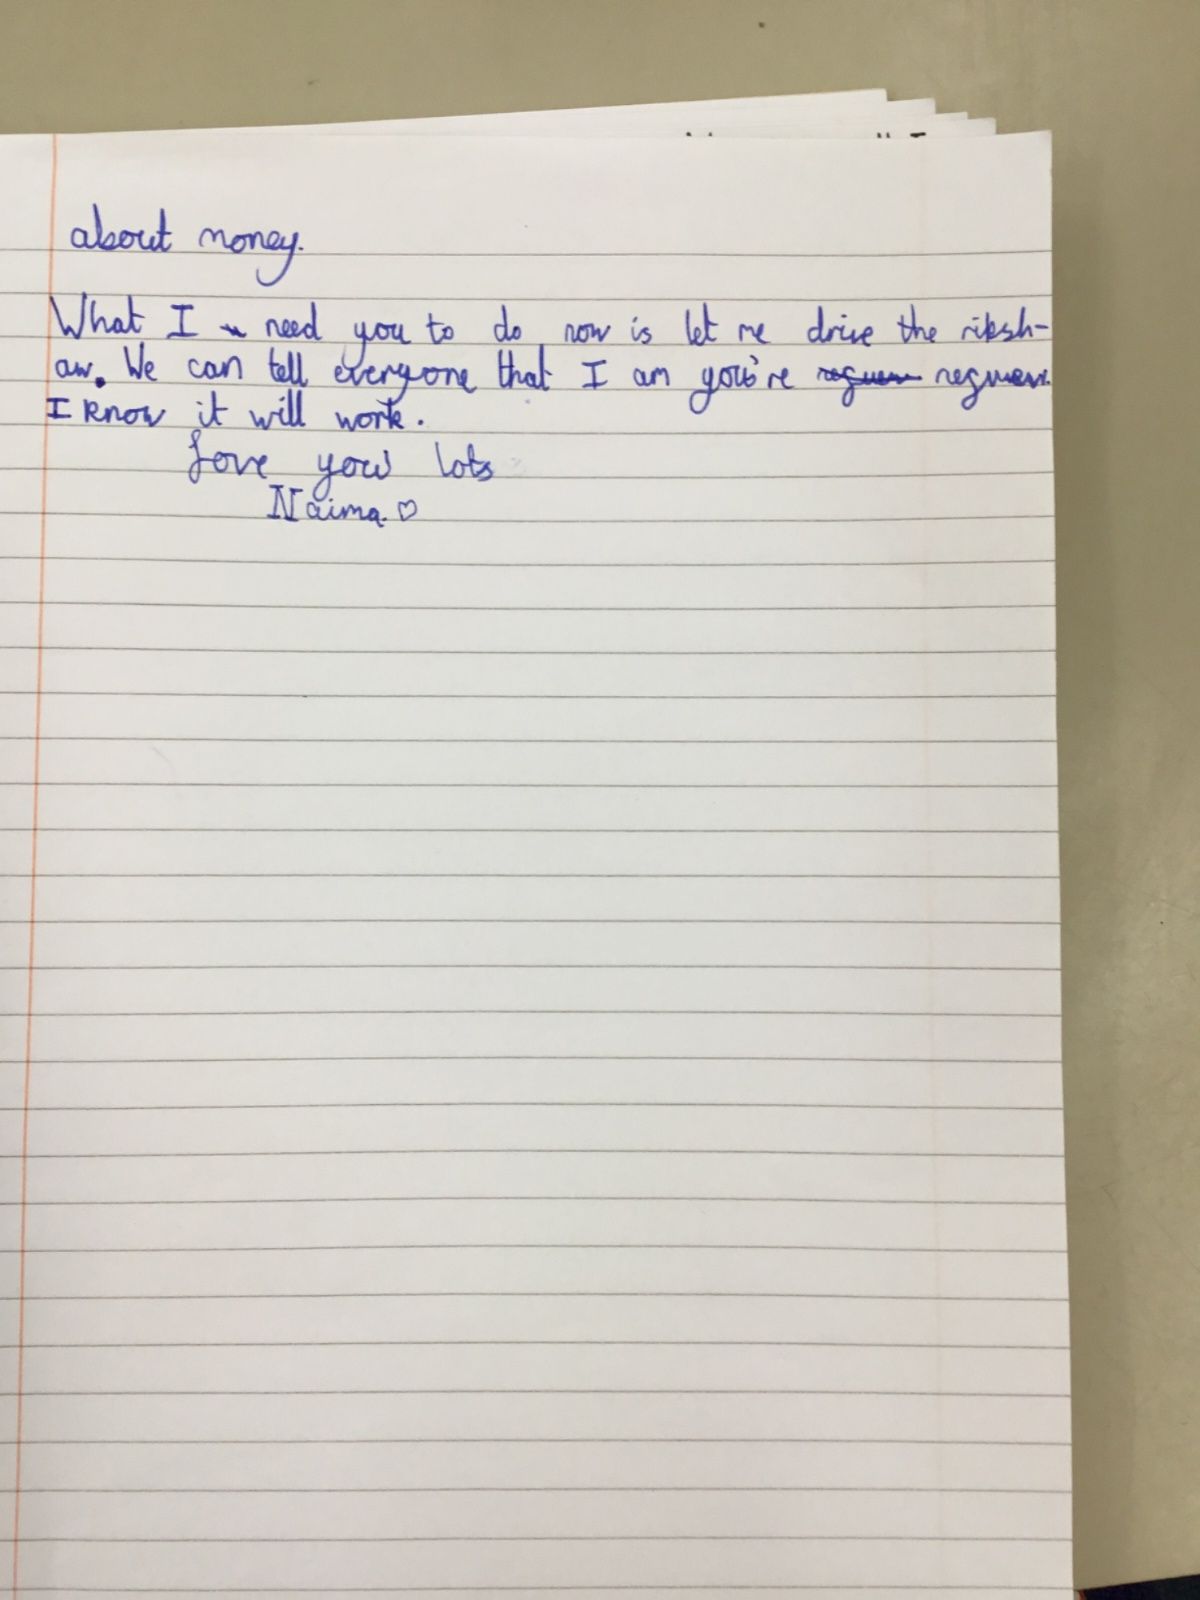 about money.
What I need you to do now is let me drive the riksh-
aw. We can tell everyone that I am you're
I know it will work.
Love you lots
Naima. ♡